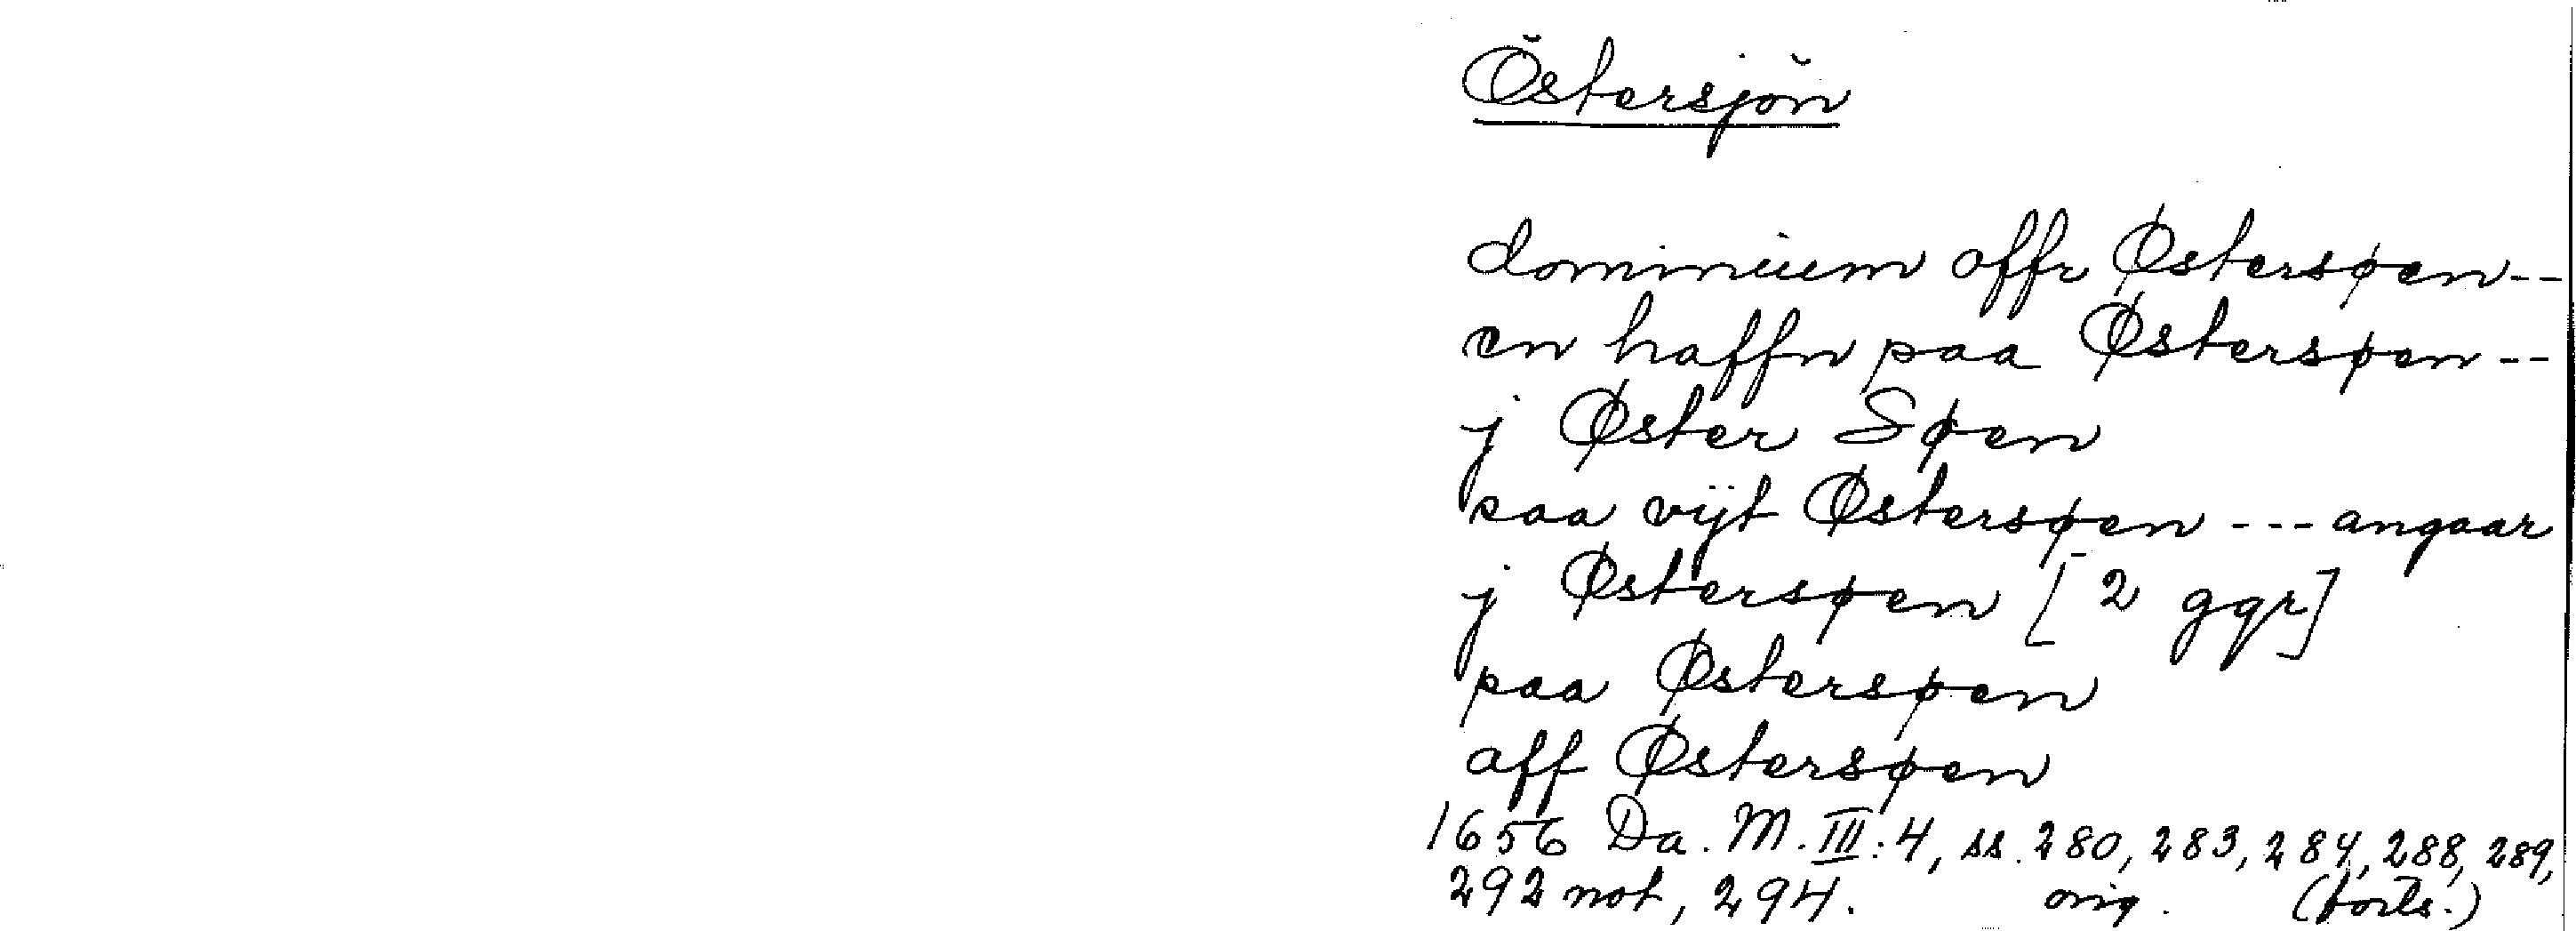 Östersjön
dominium offr Østersøen--
en haffn paa Østersøen--
j Øster Søen
paa vijt Østersøen --- angaar
j Østersøen [2 ggr]
paa Østersøen
aff Østersøen
1656 Da. M. III:4, ss. 280, 283, 284, 288, 289,
292 not, 294. orig. (forts.)